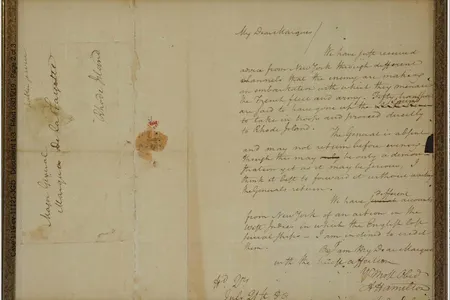 Major General
Marquis De la Fayette
Rhode Island
My Dear Marquis
We have just received
advice from New York through different
channels that the enemy are making
an embarkation with which they menace
the French fleet and army. Fifty transports
are said to have gone up the Sound
to take in troops and proceed directly
to Rhode Island.
The General is absent
and may not return before evening
though this may be only a demon
stration yet as it may be serious, I
think it best to forward it without waiting
the Generals return.
We have different accounts
from New York of an action in the
West Indies in which the English lost
several ships. I am inclined to credit
them.
I am My Dear Marquis
with the
A Hamilton